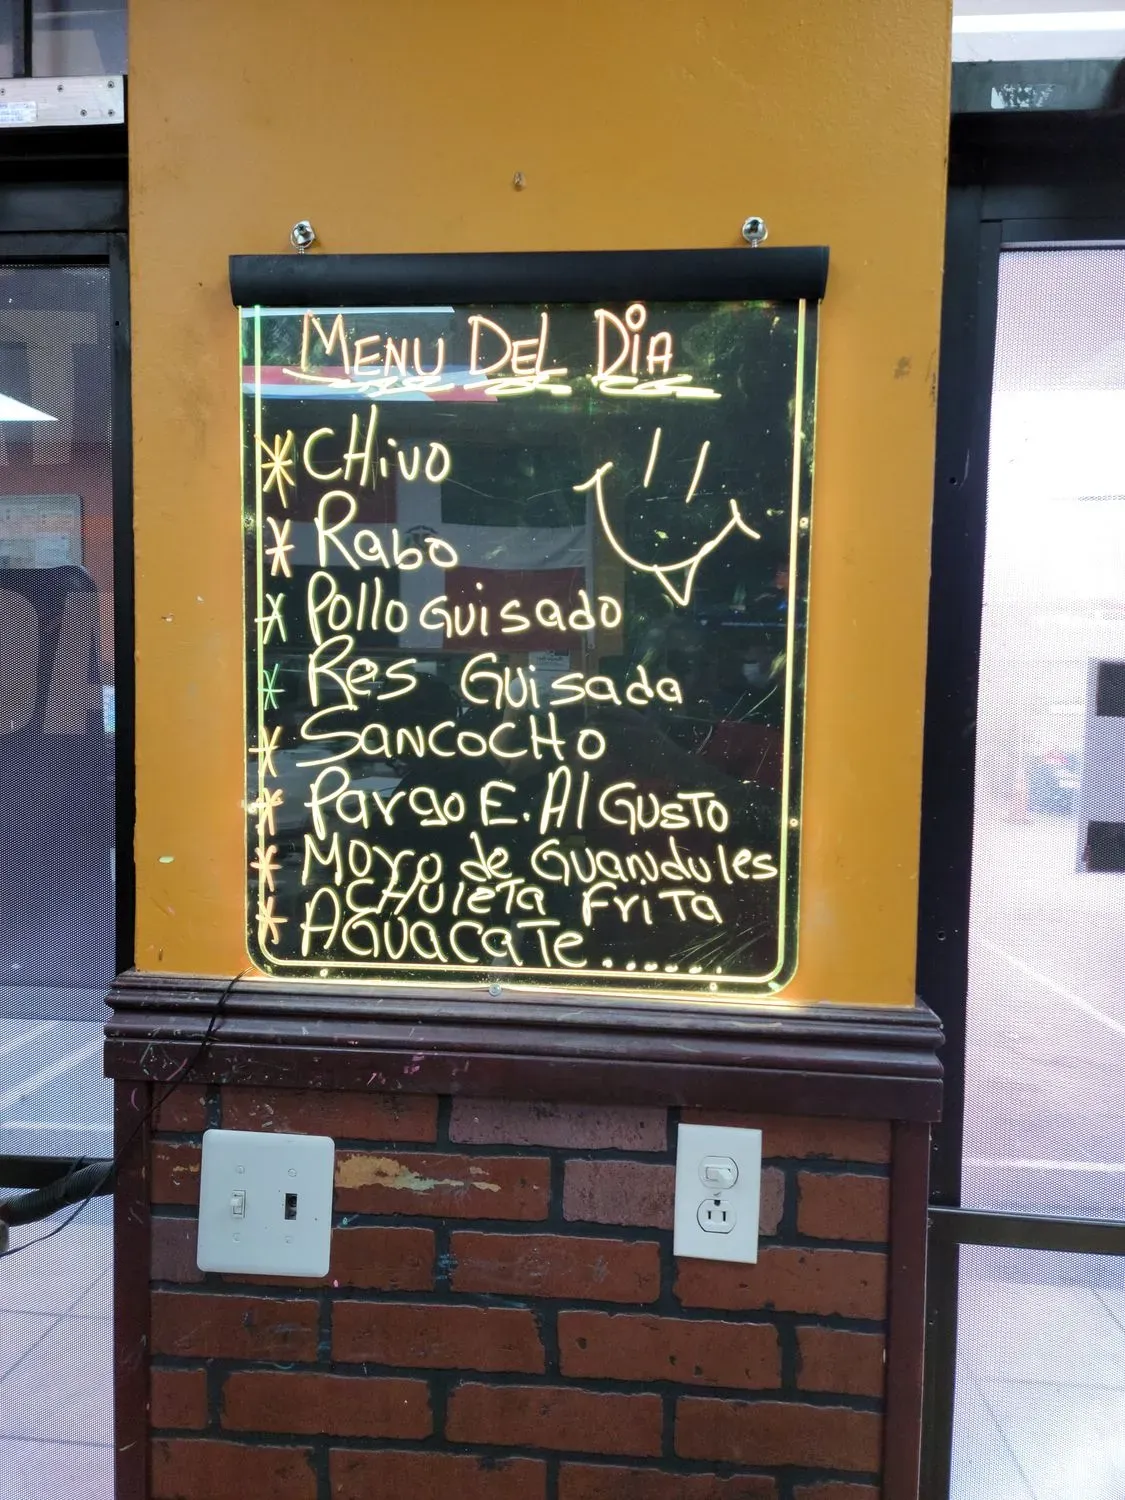 MENU DEL DiA
* CHivo
* Rabo
* Pollo Guisado
* Res Guisada
* SANCOCHO
* Pargo E. Al GUSTO
* Moro de Guandules
CHUleTa FriTa
* AGUACaTe......